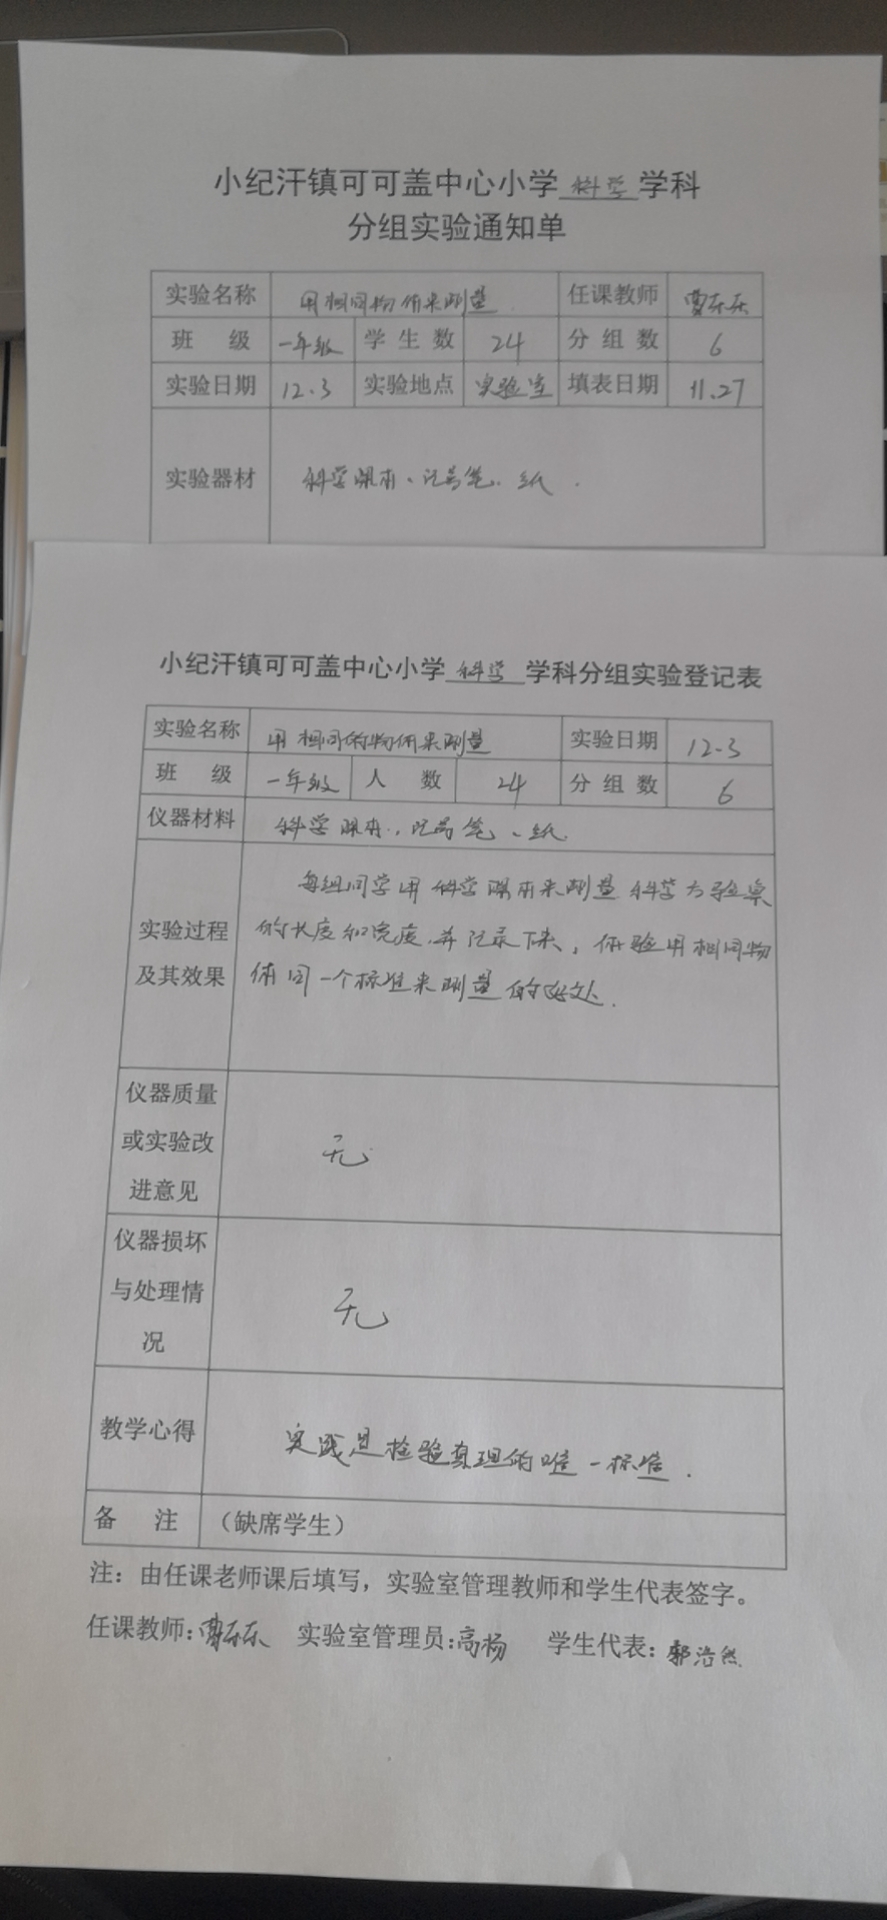 小纪汗镇可可盖中心小学 科学 学科
分组实验通知单
实验名称 用相同物体来测量 任课教师 曹乐乐
班 级 一年级 学生数 24 分组数 6
实验日期 12.3 实验地点 实验室 填表日期 11.27
实验器材 科学课本、记号笔、纸.
小纪汗镇可可盖中心小学 科学 学科分组实验登记表
实验名称 用相同的物体来测量 实验日期 12.3
班 级 一年级 人 数 24 分组数 6
仪器材料 科学课本、记号笔、纸.
每组同学用科学课本来测量科学实验桌
实验过程 的长度和宽度,并记录下来,体验用相同物
及其效果 体同一个标准来测量的好处.
仪器质量
或实验改 无
进意见
仪器损坏
与处理情 无
况
教学心得 实践是检验真理的唯一标准.
备 注 (缺席学生)
注:由任课老师课后填写,实验室管理教师和学生代表签字。
任课教师:曹乐乐 实验室管理员:高杨 学生代表:郭浩然